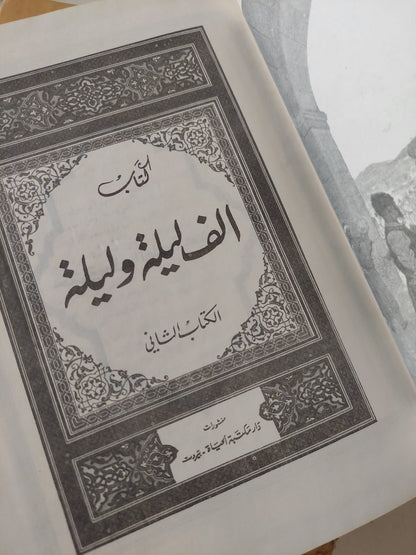 كتاب
الف ليلة وليلة
الكتاب الثاني
منشورات
دار مكتبة الحياة - بيروت